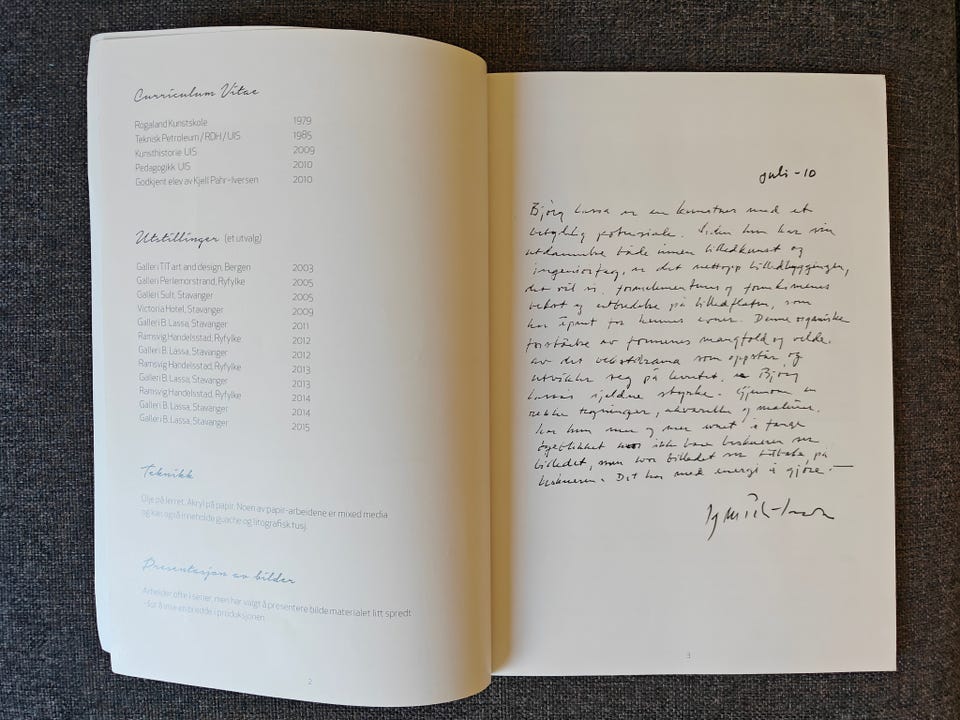 Curriculum Vitae
Rogaland Kunstskole 1979
Teknisk Petroleum / RDH / UIS 1985
Kunsthistorie UIS 2009
Pedagogikk UIS 2010
Godkjent elev av Kjell Pahr-Iversen 2010
Utstillinger (et utvalg)
Galleri TIT art and design, Bergen 2003
Galleri Perlemorstrand, Ryfylke 2005
Galleri Sult, Stavanger 2005
Victoria Hotel, Stavanger 2009
Galleri B. Lassa, Stavanger 2011
Ramsvig Handelsstad, Ryfylke 2012
Galleri B. Lassa, Stavanger 2012
Ramsvig Handelsstad, Ryfylke 2013
Galleri B. Lassa, Stavanger 2013
Ramsvig Handelsstad, Ryfylke 2014
Galleri B. Lassa, Stavanger 2014
Galleri B. Lassa, Stavanger 2015
Teknikk
Olje på lerret. Akryl på papir. Noen av papir-arbeidene er mixed media
og kan også inneholde guache og litografisk tusj.
Presentasjon av bilder
Arbeider ofte i serier, men har valgt å presentere bilde materialet litt spredt
- for å vise en bredde i produksjonen.
2
juli -10
Björg Lassa er en kunstner med et
betydelig potensiale. Siden hun har sin
utdannelse både innen billedkunst og
ingeniørfag, er det nettopp billedbyggingen,
det vil si, formelementenes og formkimenes
vekst og utbredelse på billedflaten, som
har åpnet for hennes evner. Denne organiske
forståelse av formenes mangfold og velde
av det vekstdrama som oppstår og
utvikler seg på lerretet, er Björg
Lassas sjeldne styrke. Gjennom en
rekke tegninger, akvareller og malerier
har hun mer og mer evnet å fange
øyeblikket hvor ikke bare beskueren ser
billedet, men hvor billedet ser tilbake på
beskueren. Det har med energi å gjøre.
3